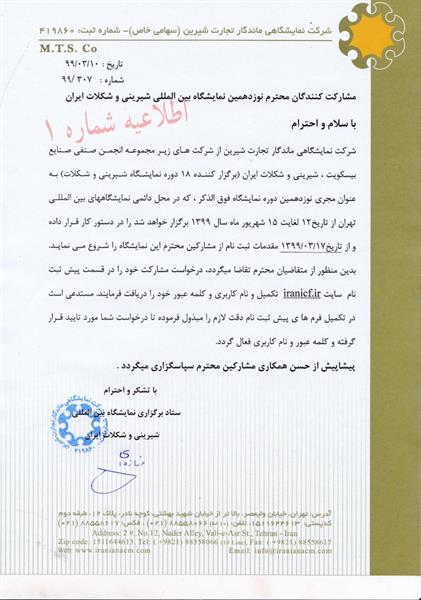 شرکت نمایشگاهی ماندگار تجارت شیرین (سهامی خاص)- شماره ثبت: ۴۱۹۸۶۰
M.T.S. Co
تاریخ : ۹۹/۰۳/۱۰
شماره : ۹۹/ ۳۰۷
مشارکت کنندگان محترم نوزدهمین نمایشگاه بین المللی شیرینی و شکلات ایران
با سلام و احترام
اطلاعیه شماره ۱
شرکت نمایشگاهی ماندگار تجارت شیرین از شرکت های زیر مجموعه انجمن صنفی صنایع
بیسکویت ، شیرینی و شکلات ایران (برگزار کننده ۱۸ دوره نمایشگاه شیرینی و شکلات) به
عنوان مجری نوزدهمین دوره نمایشگاه فوق الذکر ، که در محل دائمی نمایشگاههای بین المللی
تهران از تاریخ۱۲ لغایت ۱۵ شهریور ماه سال ۱۳۹۹ برگزار خواهد شد را در دستور کار قرار داده
و از تاریخ۱۳۹۹/۰۳/۱۷ مقدمات ثبت نام از مشارکین محترم این نمایشگاه را شروع می نماید.
بدین منظور از متقاضیان محترم تقاضا میگردد، درخواست مشارکت خود را در قسمت پیش ثبت
نام سایت iranicf.ir تکمیل و نام کاربری و کلمه عبور خود را دریافت فرمایند. مستدعی است
در تکمیل فرم ها ی پیش ثبت نام دقت لازم را مبذول فرموده تا درخواست شما مورد تایید قرار
گرفته و کلمه عبور و نام کاربری فعال گردد.
پیشاپیش از حسن همکاری مشارکین محترم سپاسگزاری میگردد .
با تشکر و احترام
ستاد برگزاری نمایشگاه بین المللی
شیرینی و شکلات ایران
آدرس: تهران، خیابان ولیعصر، بالا تر از خیابان شهید بهشتی، کوچه نادر، پلاک ۱۲، طبقه دوم
کدپستی: ۱۵۱۱۶۴۴۶۱۳، تلفن: (۱۰ خط) ۸۸۵۵۸۰۶۶ (۰۲۱)، فکس: ۸۸۵۵۸۶۱۷ (۰۲۱)
Address: 2 #, No.12, Nader Alley, Vali-e-Asr St., Tehran - Iran
Zip code: 1511644613, Tel: ( +9821) 88558066 (10 Line), Fax: ( +9821) 88558617
Web: www.iranianacm.com Email: info@iranianacm.com